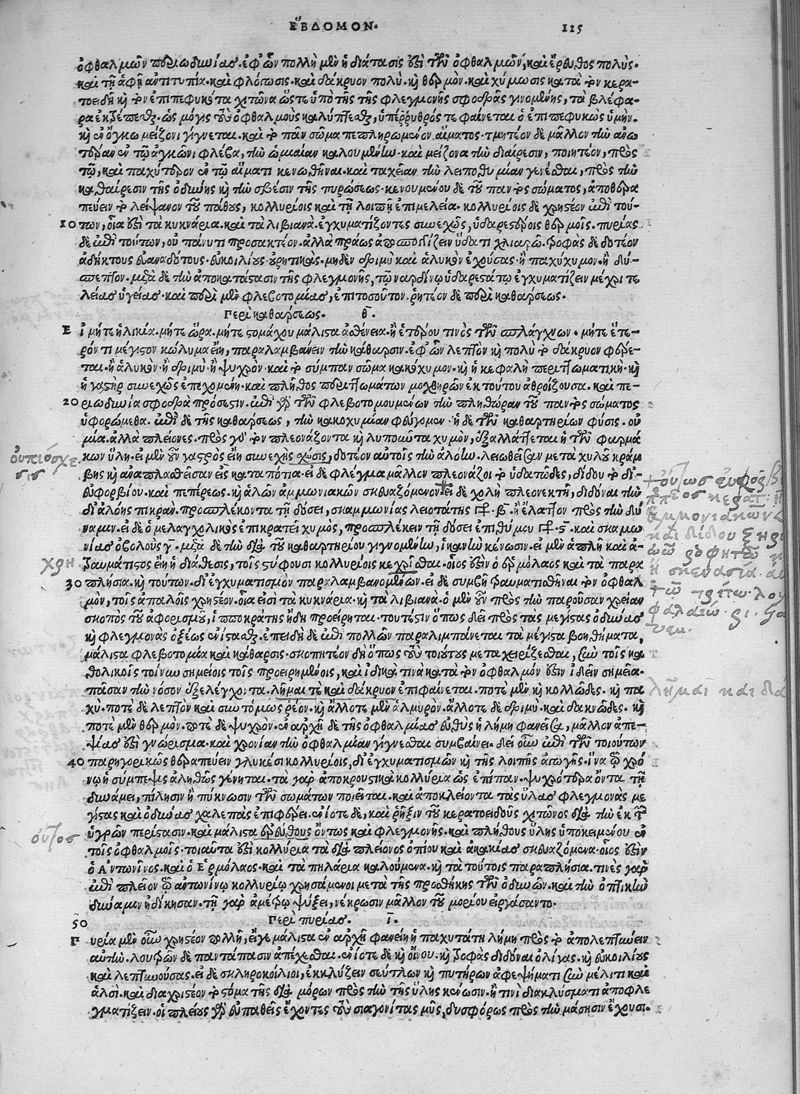 ἙΒΔΟΜΟΝ. 125
ὀφθαλμῶν περιωδυνίας. ἐφ' ὧν πολλὴ μὲν ἡ διάτασις ἐστὶ τῶν ὀφθαλμῶν, καὶ ἔρευθος πολύς.
καὶ τῇ ἁφῇ ἀντιτυπία. καὶ φλόγωσις. καὶ δάκρυον πολύ. καὶ θερμόν. καὶ χύμωσις κατὰ τὸν κερα-
τοειδῆ καὶ τὸν ἐπιπεφυκότα χιτῶνα ὥστε ὑπὸ τῆς τῆς φλεγμονῆς σφοδρᾶς γινομένης, τὰ βλέφα-
ρα ἐκτέπεσθαι. ὡς μόγις τοὺς ὀφθαλμοὺς καλύπτεσθαι, ὑπέρυθρός τε φαίνεται ὁ ἐπιπεφυκὼς ὑμήν.
καὶ ἐν ὄγκῳ μείζονι γίγνεται. καὶ τὸ πᾶν σῶμα πεπληρωμένον αἵματος. τμητέον δὲ μᾶλλον τὴν ἀνω
τέραν ἐν τῷ ἀγκῶνι φλέβα, τὴν ὠμιαίαν καλουμένην. καὶ μείζονα τὴν διαίρεσιν, ποιητέον, πρὸς
τῷ, καὶ παχύτερον τῷ αἵματι κενωθῆναι. καὶ ταχεῖαν τὴν λειποθυμίαν γενέσθαι, πρὸς τὴν
καθαίρεσιν τῆς ὀδύνης καὶ τὴν σβέσιν τῆς πυρώσεως. κενουμένου δὲ τοῦ παντὸς σώματος, ἀποθερα
πεύειν τὸ λείψανον τοῦ πάθους, κολλυρίοις καὶ τῇ λοιπῇ ἐπιμελείᾳ. κολλυρίοις δὲ χρηστέον ἐπὶ τού-
10 των, οἷα ἐστὶ τὰ κυκνάρια. καὶ τὰ λιβιανά. ἐγχυματίζοντες συνεχῶς, ὑδαρεστέροις θερμοῖς. πυρίας
δὲ ἐπὶ τούτων, οὐ πάνυ τι προσακτέον. ἀλλὰ πράως ἀποσπογγίζειν ὕδατι χλιαρῷ. τροφὰς δὲ δοτέον
ἀδήκτους εὐαναδότους. εὐκοιλίους οὐρητικάς. μηδὲν δριμὺ καὶ ἁλυκὸν ἐχούσας. ἢ παχύχυμον. ἢ δύ-
σπεπτον. μετὰ δὲ τὴν ἀποκατάστασιν τῆς φλεγμονῆς, τῷ ναρδίνῳ ὑδαρεστάτῳ ἐγχυματίζειν μέχρι τε
λείας ὑγείας. καὶ περὶ μὲν φλεβοτομίας, ἐπὶ τοσοῦτον. ῥητέον δὲ περὶ καθάρσεως.
Περὶ καθάρσεως. θ.
Εἰ μήτε ἡλικία. μήτε ὥρα. μήτε στομάχου μάλιστα ἀσθένεια. ἢ ἑτέρου τινὸς τῶν σπλάγχνων. μήτε ἕτε-
ρόν τι μέγιστον κώλυμα εἴη, παραλαμβάνειν τὴν κάθαρσιν. ἐφ' ὧν λεπτὸν καὶ πολὺ τὸ δάκρυον φέρε-
ται. ἢ ἁλυκόν. ἢ δριμύ. ἢ ψυχρόν. καὶ τὸ σύμπαν σῶμα κακόχυμον. καὶ ἡ κεφαλὴ περιττωματική. καὶ
ἡ γαστὴρ συνεχῶς ἐπεχομένη. καὶ πλῆθος περιττωμάτων μοχθηρῶν ἐκ τούτου ἀθροίζουσα. καὶ πε-
20 ριωδυνία σφοδρὰ πρόσεστιν. ἐπὶ γὰρ τῶν φλεβοτομουμένων τὴν πληθώραν τοῦ παντὸς σώματος
ὑφορώμεθα. ἐπὶ δὲ τῆς καθάρσεως, τὴν κακοχυμίαν φεύγομεν. ἡ δὲ τῶν καθαρτηρίων φύσις. οὐ
μία. ἀλλὰ πλείονες. πρὸς γὰρ τὸν πλεονάζοντα καὶ λυποῦντα χυμόν, ἐξαλλάττεται ἡ τῶν φαρμά
κων ὕλη. εἰ μὲν οὖν γαστρὸς εἴη συνεχὴς χύσις, δοτέον αὐτοῖς τὴν ἀλόην. λειωθεῖσαν μετὰ χυλοῦ κράμ
βης καὶ ἀναπλασθεῖσαν εἰς καταπότια. εἰ δὲ φλέγμα μᾶλλον πλεονάζοι τὸ ὑδατῶδες, δίδου τὸ δι'
εὐφορβίου. καὶ πεπέρεως. καὶ ἁλῶν ἀμμωνιακῶν σκευαζόμενον. εἰ δὲ χολὴ πλεονεκτῇ, διδόναι τὴν
δι' ἀλόης πικράν. προσπλέκοντα τῇ δόσει, σκαμμωνίας λειοτάτης γρ. β. ἢ ἔλαττον πρὸς τὴν δύ
ναμιν. εἰ δὲ ὁ μελαγχολικὸς ἐπικρατεῖ χυμός, προσπλέκειν τῇ δόσει ἐπιθύμου γρ. ς. καὶ σκαμω
νίας ὀβολοὺς γ. μετὰ δὲ τὴν διὰ τοῦ καθαρτηρίου γινομένην, ἱκανὴν κένωσιν. εἰ μὲν ἁπλῆ καὶ ἀ-
τραυμάτιστος εἴη ἡ διάθεσις, τοῖς στύφουσι κολλυρίοις κεχρῆσθαι. οἷος ἐστὶν ὁ ἑρμόλαος καὶ τὰ παρα
30 πλήσια. καὶ τούτων. δι' ἐγχυματισμὸν παραλαμβανομένων. εἰ δὲ συμβῇ τραυματισθῆναι τὸν ὀφθαλ
μόν, τοῖς ἁπαλοῖς χρηστέον. οἷα εἰσὶ τὰ κυκνάρια. καὶ τὰ λιβιανά. ὁ μὲν οὖν πρὸς τὴν παροῦσαν χρείαν
σκοπὸς τοῦ ἀφορισμοῦ, ἱπποκράτης ἤδη προείρηται. τουτέστιν ὅπως δεῖ πρὸς τὰς μεγίστας ὀδύνας
καὶ φλεγμονὰς ὀξέως ἐνίστασθαι. ἐπειδὴ δὲ ἐπὶ πολλῶν παραλιμπάνεται τὰ μέγιστα βοηθήματα,
μάλιστα φλεβοτομία καὶ κάθαρσις. σκοπητέον δὴ πῶς ἄν τοὺς τοιούτους μεταχειρίζεσθαι, σὺν τοῖς κα
θολικοῖς τοίνυν σημείοις τοῖς προειρημένοις, καὶ ἰδικά τινα κατὰ τὸν ὀφθαλμόν ἐστὶν ἰδεῖν σημεῖα.
πᾶσαν τὴν νόσον ἐξελέγχοντα. λῆμαί τε καὶ δάκρυον ἐπιφαίνεται. ποτὲ μὲν καὶ κολλῶδες. καὶ πα
χύ. ποτὲ δὲ λεπτὸν καὶ συντόμως ῥέον. καὶ ἄλλοτε μὲν ἁλμυρόν. ἄλλοτε δὲ δριμύ. καὶ δακνῶδες. καὶ
ποτὲ μὲν θερμόν. ποτὲ δὲ ψυχρόν. ἐν ἀρχῇ δὲ τῆς ὀφθαλμίας εὐθὺς ἡ λήμη φανεῖσα, μᾶλλον ἀπε-
ψίας ἐστὶ γνώρισμα. καὶ χρονίαν τὴν ὀφθαλμίαν γίγνεσθαι συμβαίνει. δεῖ οὖν ἐπὶ τῶν τοιούτων
40 παρηγορικῶς θεραπεύειν γλυκέσι κολλυρίοις, δι' ἐγχυματισμῶν καὶ τῆς λοιπῆς ἀγωγῆς. ἵνα τῷ χρό
νῳ ἡ σύμπεψις ἀληθῶς γένηται. τὰ γὰρ ἀποκρουστικὰ κολλύρια ὡς ἐπίπαν. ψυχρότερα ὄντα τῇ
δυνάμει, πίλησιν ἢ πύκνωσιν τῶν σωμάτων ποιεῖται. καὶ ἀποκλείοντα τὰς ὕλας φλεγμονὰς με
γίστας καὶ ὀδύνας χαλεπὰς ἐπιφέρει. ἐνίοτε δὲ, καὶ ῥῆξιν τοῦ κερατοειδοῦς χιτῶνος διὰ τὴν ἐκ τῶν
ὑγρῶν περίτασιν. καὶ μάλιστα ἐρεύθους ὄντος καὶ φλεγμονῆς. καὶ πλήθους ὕλης ὑποκειμένου ἐν
τοῖς ὀφθαλμοῖς. τοιαῦτα ἐστὶ κολλύρια τὰ διὰ πλείονος ὀπίου καὶ ἀκακίας σκευαζόμενα. οἷος ἐστὶν
ὁ Ἀντωνῖνος. καὶ ὁ Ἑρμόλαος. καὶ τὰ πηλάρια καλούμενα. καὶ τὰ τούτοις παραπλήσια. τινὲς γὰρ
ἐπὶ πλεῖον τῷ αὐτωνίνῳ κολλυρίῳ χρησάμενοι μετὰ τῆς προσθήκης τῶν ὀδυνῶν. καὶ τὴν ὀπτικὴν
δύναμιν ἠδίκησαν. τῇ γὰρ ἀμέτρῳ ψύξει, νέκρωσιν μᾶλλον τοῦ μορίου εἰργάσαντο.
50 Περὶ πυρίας. ι.
Πυρίᾳ μὲν οὖν χρηστέον πολλῇ, εἴγε μάλιστα ἐν ἀρχῇ φανείη ἡ παχυτάτη λήμη πρὸς τὸ ἀπολεπτύνειν
αὐτήν. λουτρῶν δὲ παντάπασιν ἀπέχεσθαι. ἐνίοτε δὲ καὶ οἴνου. καὶ τροφὰς διδόναι ὀλίγας. καὶ εὐκοιλίους
καὶ λεπτυνούσας. εἰ δὲ σκληροκοίλιοι, ἐκκλύζειν σεύτλων καὶ πιτύρων ἀφεψήματι σὺν μέλιτι καὶ
ἁλσί. καὶ διαχριστέον τὸ στόμα τῆς διὰ μόρων πρὸς τὴν τῆς ὕλης κένωσιν. ἤ τινι διακλύσματι ἀποφλε
γματίζειν. οἱ πλείους γὰρ εὐπαθεῖς ἔχοντες τοὺς σιαγονίτας μῦς, δυσφόρως πρὸς τὴν μάσησιν ἔχουσι.